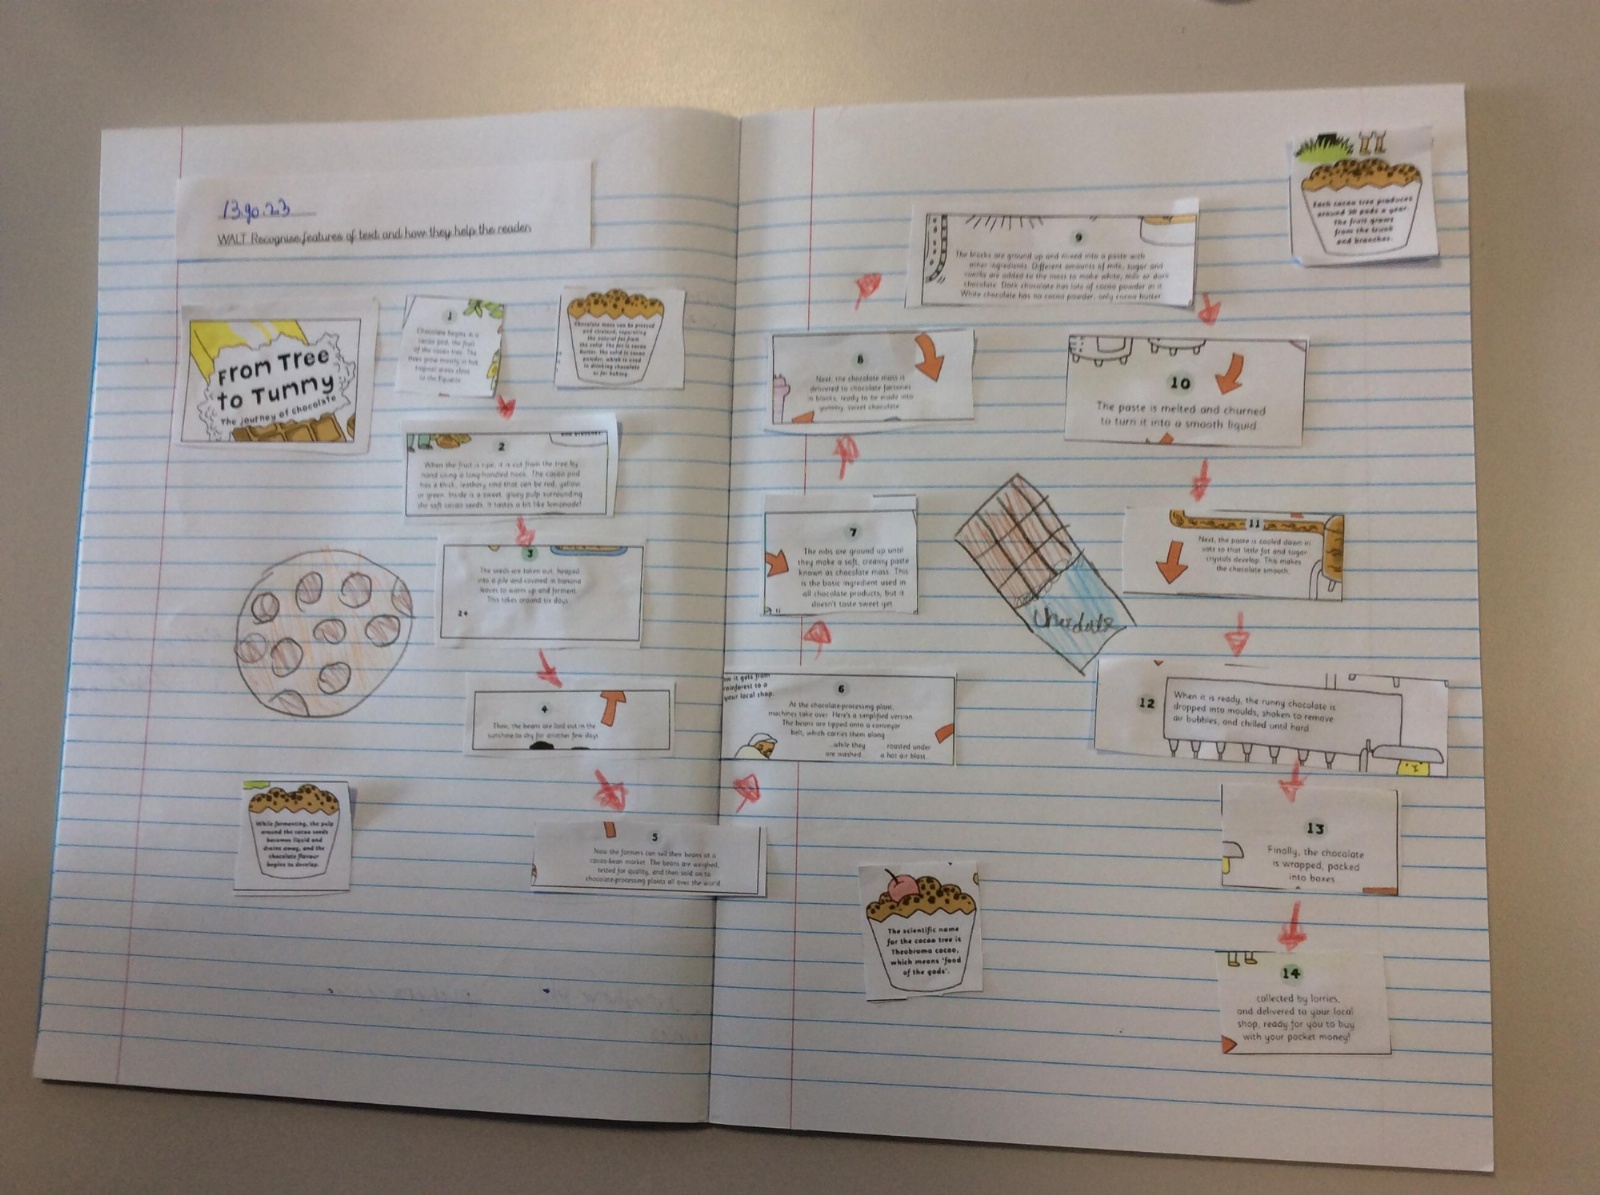 WALT Recognise features of text and how they help the reader
From Tree
to Tummy
The journey of chocolate
1
Chocolate begins in a
cacao pod, the fruit
of the cacao tree. The
trees grow mostly in hot,
tropical areas close
to the Equator.
Chocolate mass can be pressed
and
the natural fat from
the solid. The fat is cocoa
butter, the solid is cocoa
powder, which is used
in drinking chocolate
or for baking.
2
When the fruit is ripe, it is cut from the tree by
hand using a long-handled hook. The cacao pod
has a thick, leathery rind that can be red, yellow
or green. Inside is a sweet, gluey pulp surrounding
the soft cacao seeds. It tastes a bit like lemonade!
3
The seeds are taken out, heaped
into a pile and covered in banana
leaves to warm up and ferment.
This takes around six days.
4
Then, the beans are laid out in the
sunshine to dry for another few days
While fermenting, the pulp
around the cacao seeds
becomes liquid and
drains away, and the
chocolate flavour
begins to develop.
5
Now the farmers can sell their beans at a
cacao-bean market. The beans are weighed,
tested for quality, and then sold on to
chocolate-processing plants all over the world
6
it gets from
rainforest to a
your local shop.
At the chocolate-processing plant,
machines take over. Here's a simplified version.
The beans are tipped onto a conveyor
belt, which carries them along
...while they are washed
roasted under a hot air blast.
7
The nibs are ground up until
they make a soft, creamy paste
known as chocolate mass. This
is the basic ingredient used in
all chocolate products, but it
doesn't taste sweet yet.
8
Next, the chocolate mass is
delivered to chocolate factories
in blocks, ready to be made into
yummy, sweet chocolate.
9
The blocks are ground up and mixed into a paste with
other ingredients. Different amounts of milk, sugar and
vanilla are added to the mass to make white, milk or dark
chocolate. Dark chocolate has lots of cocoa powder in it.
White chocolate has no cocoa powder, only cocoa butter.
Each cacao tree produces
around 30 pods a year.
The fruit grows
from the trunk
and branches.
10
The paste is melted and churned
to turn it into a smooth liquid.
Chocolate
11
Next, the paste is cooled down in
vats so that little fat and sugar
crystals develop. This makes
the chocolate smooth.
12
When it is ready, the runny chocolate is
dropped into moulds, shaken to remove
air bubbles, and chilled until hard.
13
Finally, the chocolate
is wrapped, packed
into boxes
The scientific name
for the cacao tree is
Theobroma cacao,
which means 'food
of the gods'.
14
collected by lorries,
and delivered to your local
shop, ready for you to buy
with your pocket money!